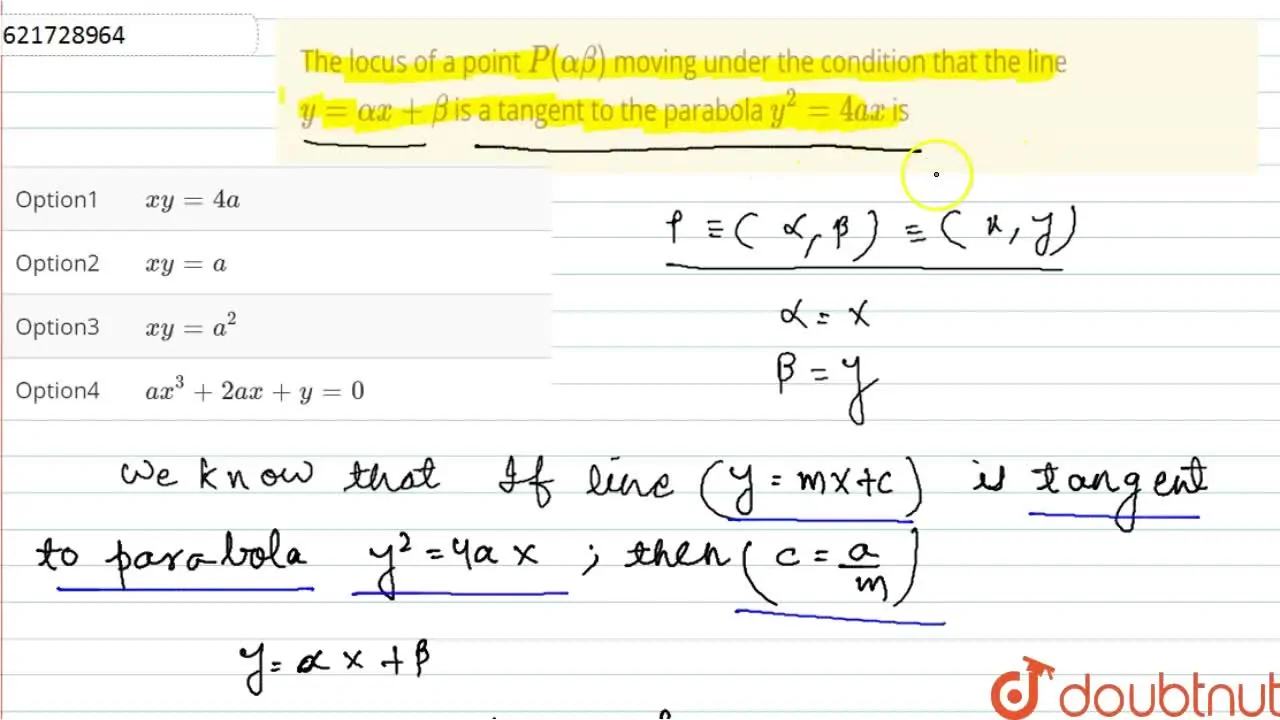 621728964
The locus of a point P(αβ) moving under the condition that the line
y = αx + β is a tangent to the parabola y² = 4ax is
Option1 xy = 4a
Option2 xy = a
Option3 xy = a²
Option4 ax³ + 2ax + y = 0
P ≡ ( α, β ) ≡ ( x, y )
α = x
β = y
We know that If line (y = mx+c) is tangent
to parabola y² = 4a x ; then ( c = a/m )
y = α x + β
doubtnut